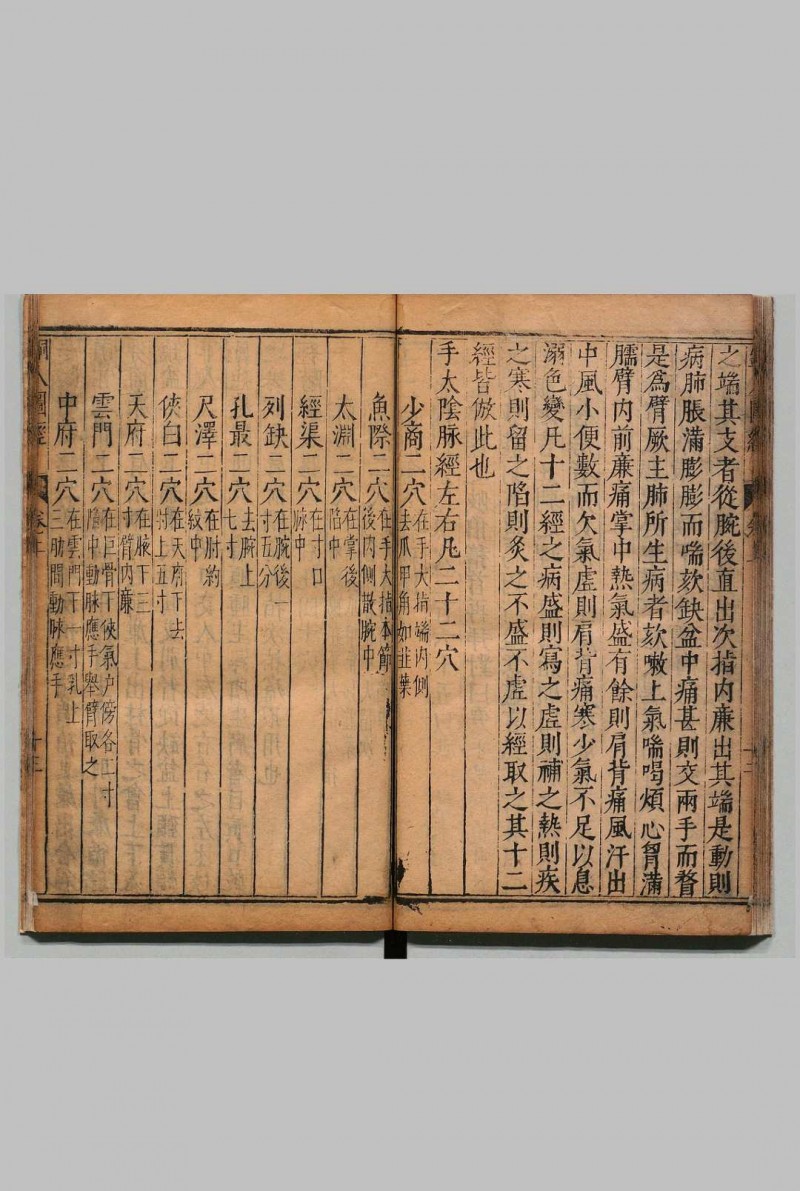 之端其支者從腕後直出次指內廉出其端是動則
病肺脹滿膨膨而喘欬缺盆中痛甚則交兩手而瞀
是為臂厥主肺所生病者欬嗽上氣喘喝煩心胷滿
臑臂內前廉痛掌中熱氣盛有餘則肩背痛風汗出
中風小便數而欠氣虛則肩背痛寒少氣不足以息
溺色變凡十二經之病盛則寫之虛則補之熱則疾
之寒則留之陷則灸之不盛不虛以經取之其十二
經皆倣此也
手太陰脉經左右凡二十二穴
少商二穴在手大指端內側去爪甲角如韭葉
魚際二穴在手大指本節後內側散脉中
太淵二穴在掌後陷中
經渠二穴在寸口脉中
列缺二穴在腕後一寸五分
孔最二穴去腕上七寸
尺澤二穴在肘約紋中
俠白二穴在天府下去肘上五寸
天府二穴在腋下三寸臂內廉
雲門二穴在巨骨下俠氣户傍各二寸陷中動脉應手舉臂取之
中府二穴在雲門下一寸乳上三肋間動脉應手
銅人圖經